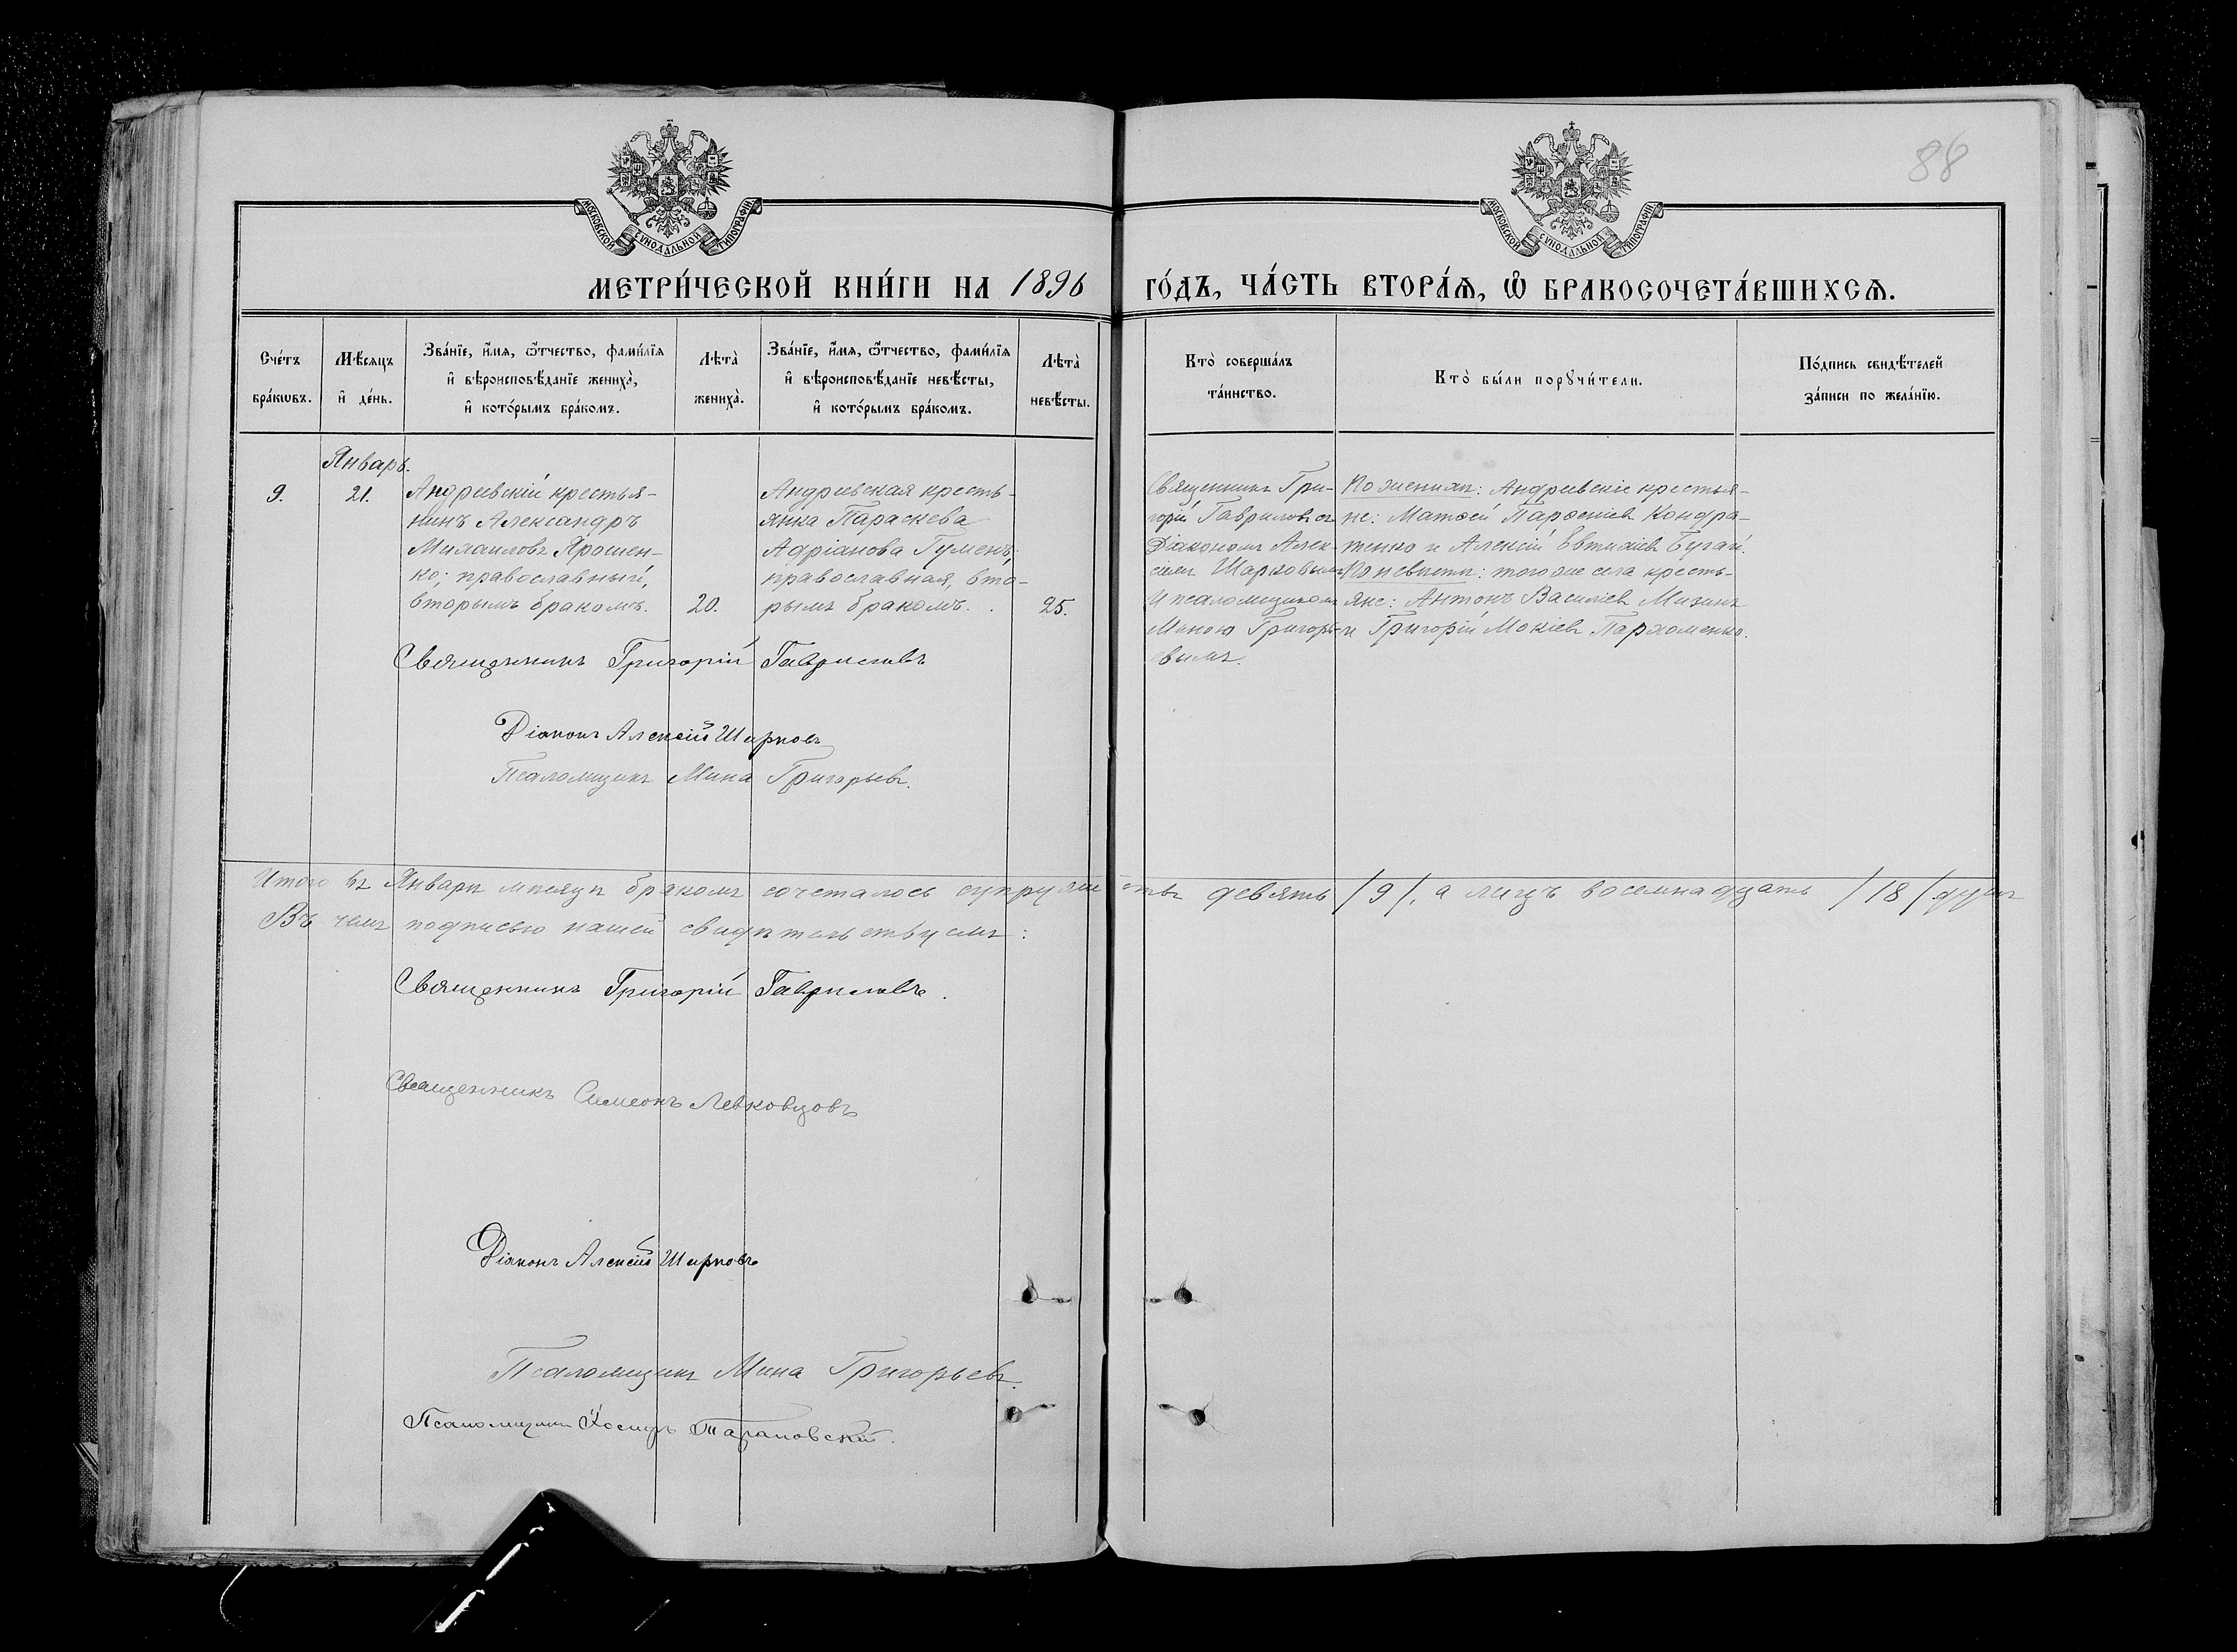 88
МОСКОВСКОЙ СѴНОДАЛЬНОЙ ТИПОГРАФІИ
МОСКОВСКОЙ СѴНОДАЛЬНОЙ ТИПОГРАФІИ
МЕТРИ́ЧЕСКОЙ КНИ́ГИ НА 1896 ГО́ДЪ, ЧА́СТЬ ВТОРА́Ѧ, Ѽ БРАКОСОЧЕТА́ВШИХСѦ.
Сче́тъ
бра́кѡвъ.
Мѣ́сяцъ
и҆ де́нь.
Зва́нїе, и҆́мя, ѻ҆́тчество, фами́лїя
и҆ вѣроисповѣ́данїе жениха̀,
и҆ кото́рымъ бра́комъ.
Лѣта̀
жениха̀.
Зва́нїе, и҆́мя, ѻ҆́тчество, фами́лїя
и҆ вѣроисповѣ́данїе невѣ́сты,
и҆ кото́рымъ бра́комъ.
Лѣта̀
невѣ́сты.
Кто̀ соверша́лъ
та́инство.
Кто̀ бы́ли порꙋчи́тели.
По́дпись свидѣ́телей
за́писи по жела́нїю.
9.
Январь.
21.
Андреевскій крестья-
нинъ Александръ
Михаиловъ Ярошен-
ко; православный,
вторымъ бракомъ.
20.
Андреевская кресть-
янка Параскева
Адріанова Гуменъ,
православная, вто-
рымъ бракомъ.
25.
Священникъ Гри-
горій Гавриловъ съ
Діакономъ Алек-
сіемъ Шарковымъ
и псаломщикомъ
Миною Григорь-
евымъ.
По женихѣ: Андреевскіе крестья-
не: Матѳей Парѳеніевъ Кондра-
тенко и Алексій Евтихіевъ Бугай.
По невѣстѣ: того же села кресть-
яне: Антонъ Василіевъ Мизинъ
и Григорій Мокіевъ Пархоменко.
Священникъ Григорій Гавриловъ
Діаконъ Алексій Шарковъ
Псаломщикъ Мина Григорьевъ.
Итого въ Январѣ мѣсяцѣ бракомъ сочеталось супружествъ девять /9/, а лицъ восемнадцать /18/ душъ
Въ чемъ подписью нашей свидѣтельствуемъ:
Священникъ Григорій Гавриловъ.
Священникъ Симеонъ Левковцовъ
Діаконъ Алексій Шарковъ
Псаломщикъ Мина Григорьевъ.
Псаломщикъ Тарановскій.